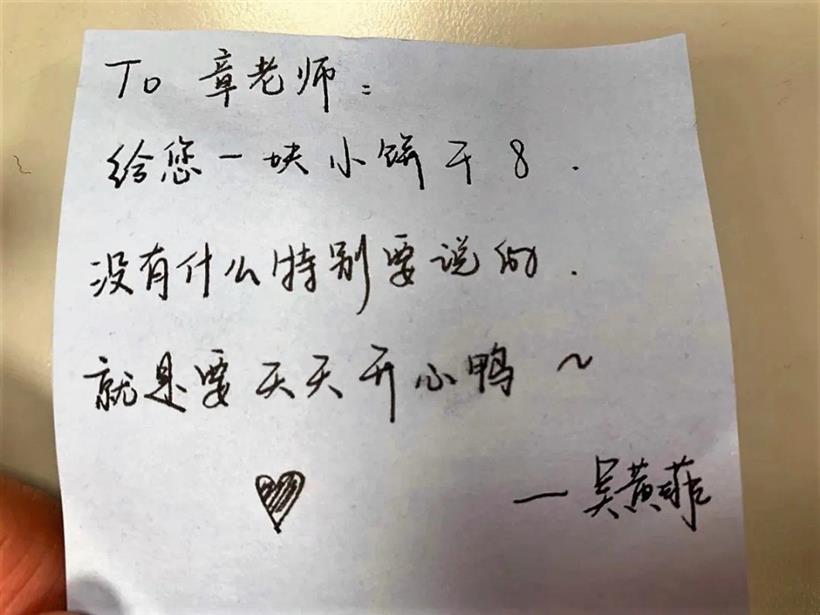 To 章老师:
给您一块小饼干8.
没有什么特别要说的.
就是要天天开心鸭~
—吴黄菲